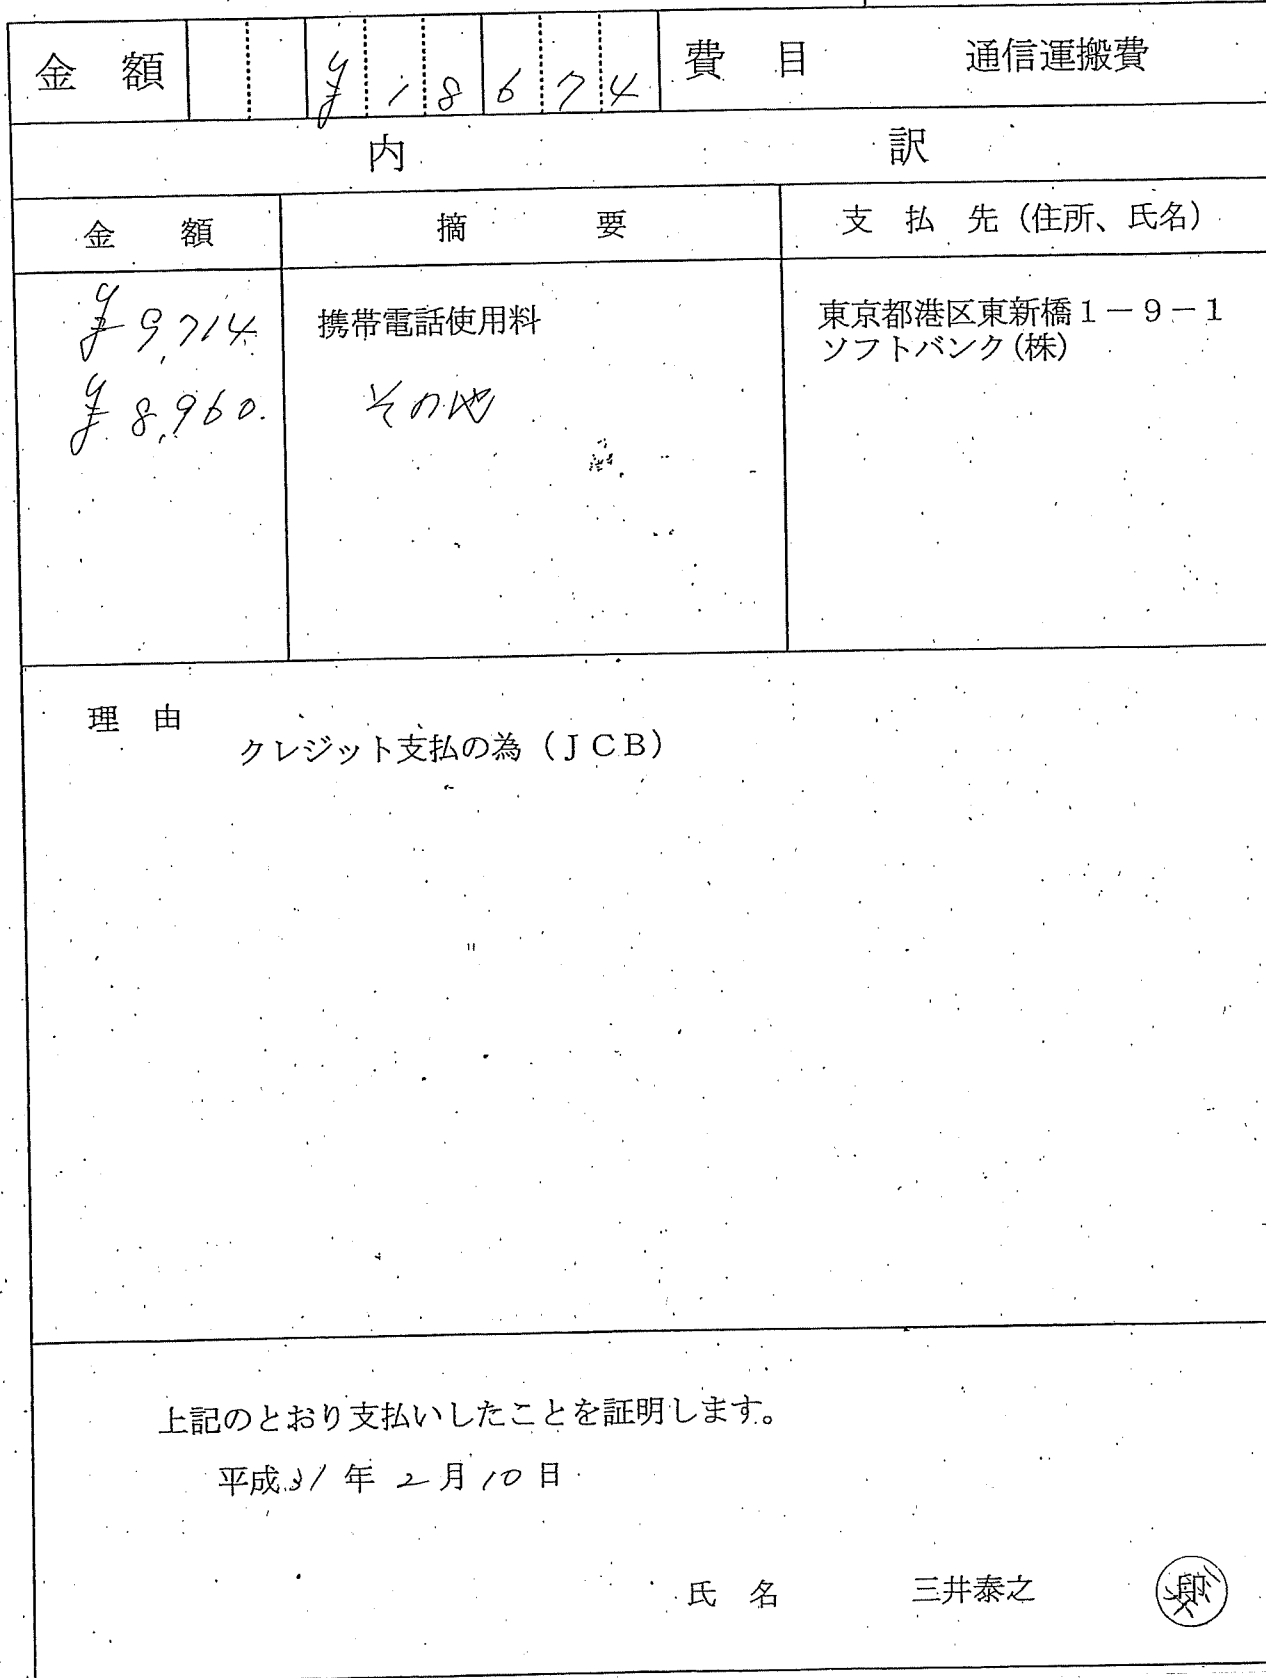 金　額 ¥18674 費　目　通信運搬費
内　訳
金　額　摘　要　支　払　先（住所、氏名）
¥9,714. 携帯電話使用料 東京都港区東新橋１－９－１
ソフトバンク(株)
¥8,960. その他
理　由
クレジット支払の為（ＪＣＢ）
上記のとおり支払いしたことを証明します。
平成31年2月10日
氏　名　三井泰之　印